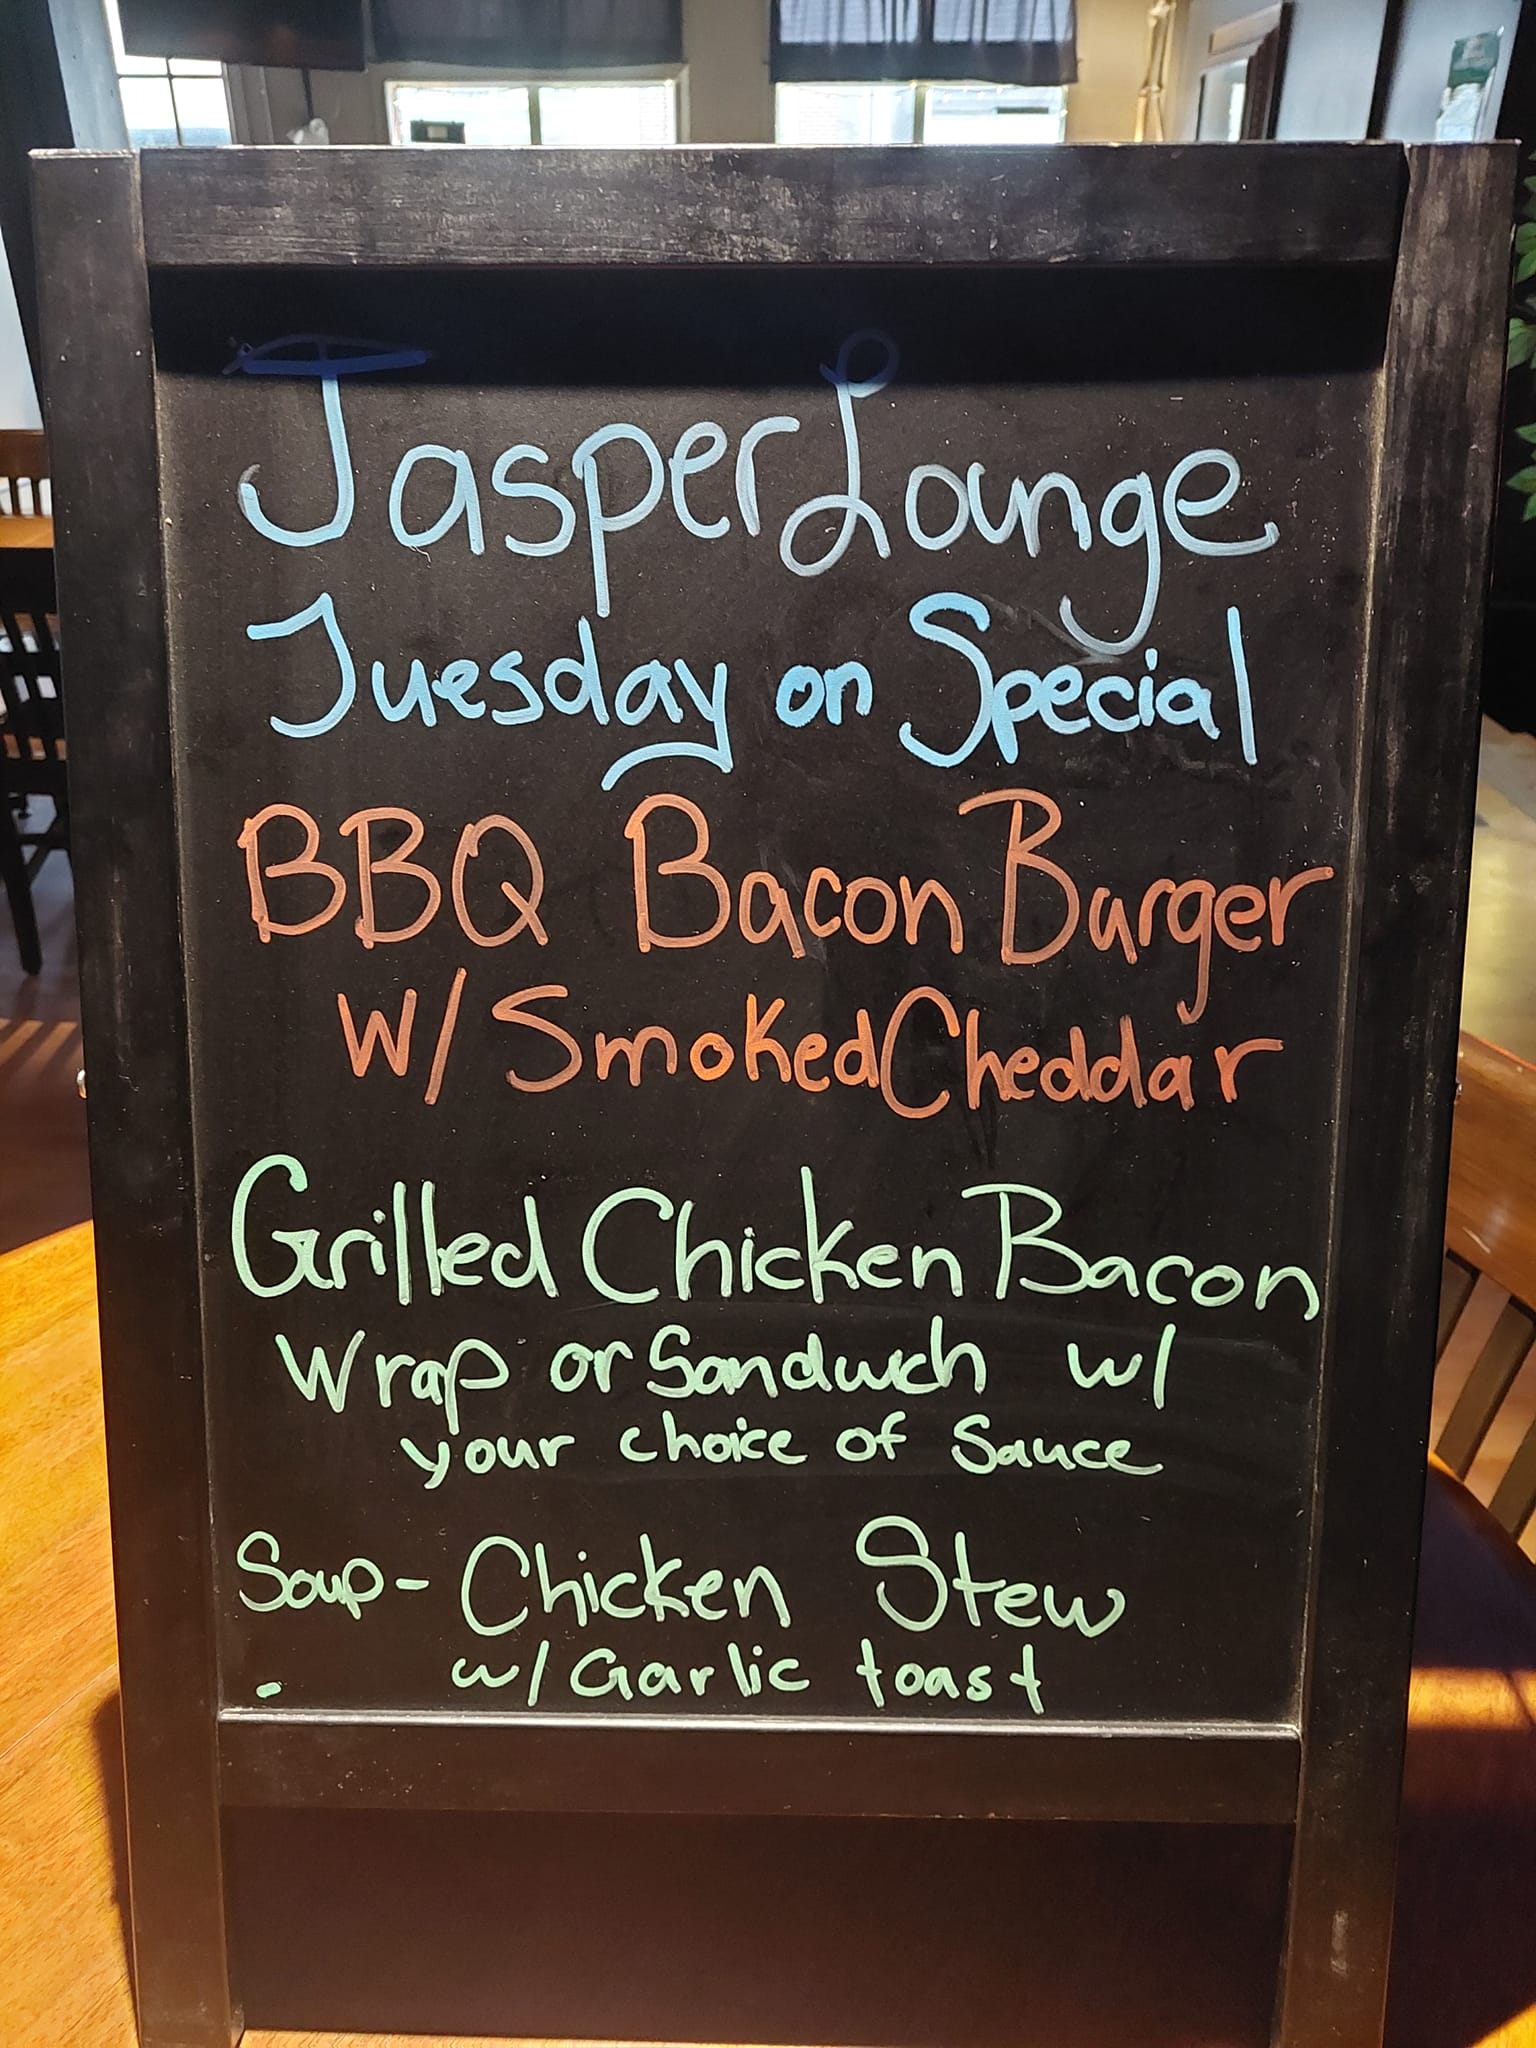 Jasper Lounge
Tuesday on Special
BBQ Bacon Burger
W/ Smoked Cheddar
Grilled Chicken Bacon
Wrap or Sandwich w/
your choice of Sauce
Soup - Chicken Stew
w/ Garlic toast